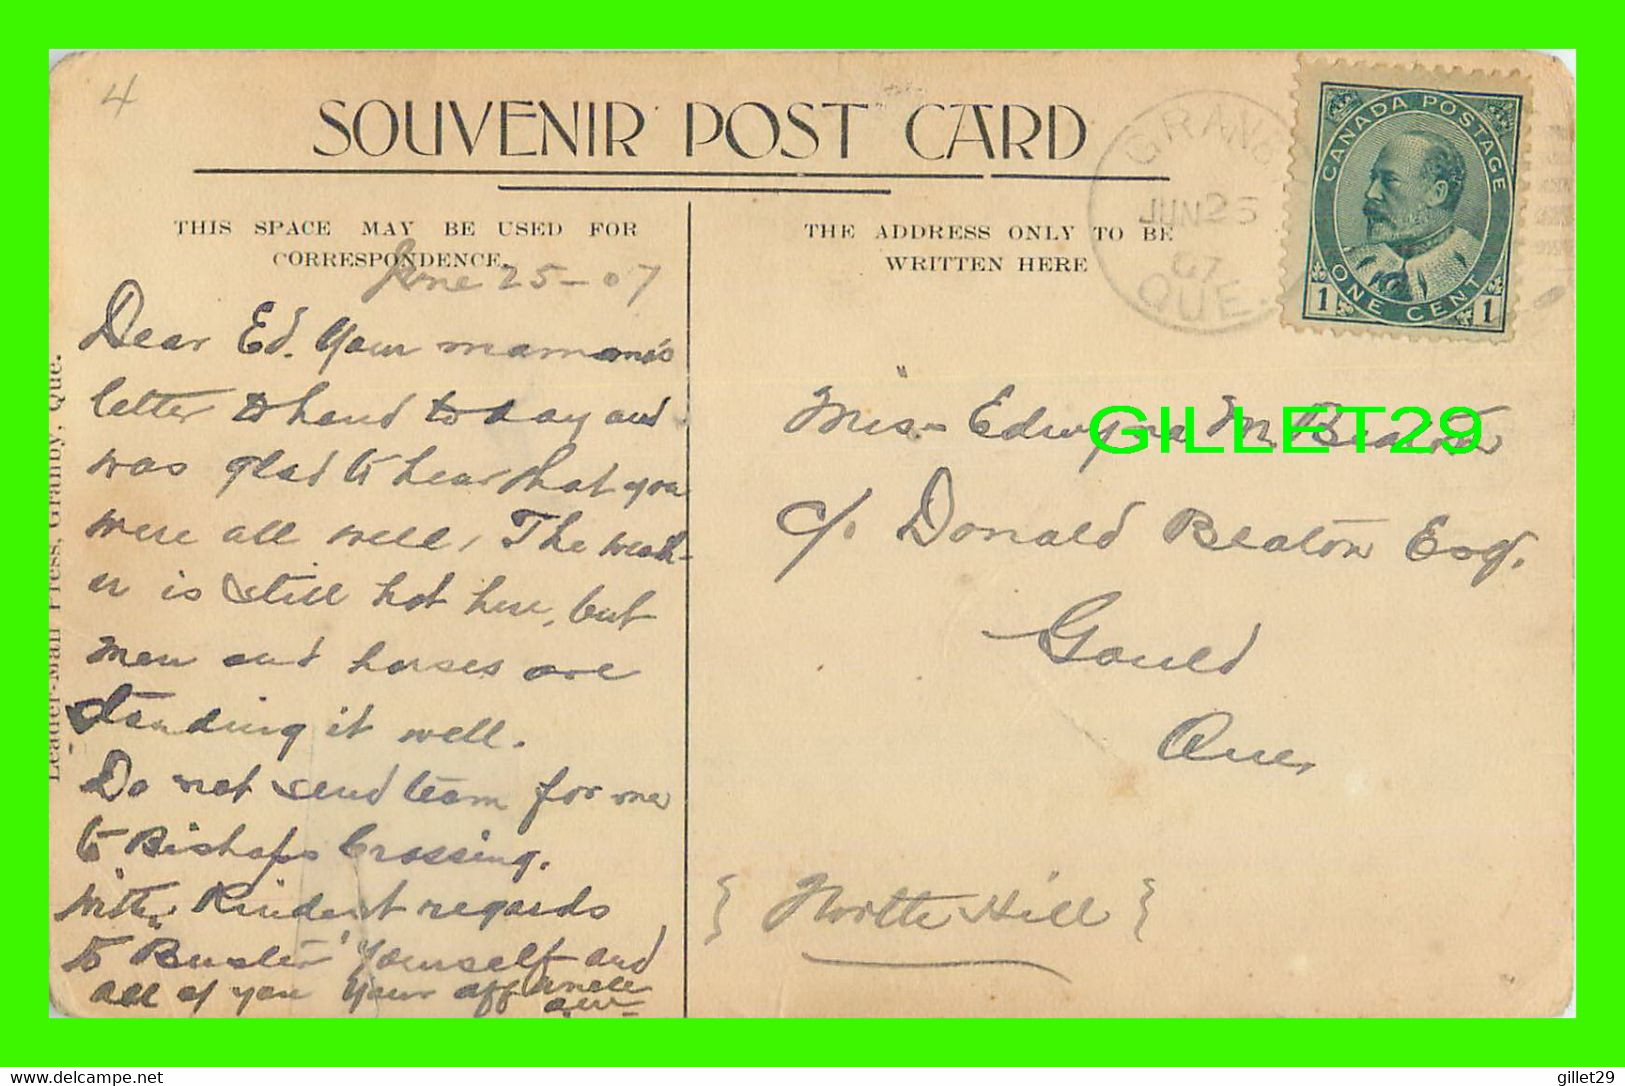 4
SOUVENIR POST CARD
THIS SPACE MAY BE USED FOR
CORRESPONDENCE.
June 25-07
Dear Ed. Your mamma's
letter to hand to day and
was glad to hear that you
were all well. The weath-
er is still hot here, but
men and horses are
standing it well.
Do not send team for me
to Bishops Crossing.
With Kindest regards
to Buster Yourself and
all of you Your aff uncle
Leader-Mail Press, Granby, Que.
THE ADDRESS ONLY TO BE
WRITTEN HERE
GRANB
JUN 25
07
QUE.
CANADA POSTAGE
ONE CENT
1 1
Miss Edwyna M. Beaton
GILLET29
c/o Donald Beaton Esq.
Gould
Que,
{ North Hill }
delcampe.net
gillet29